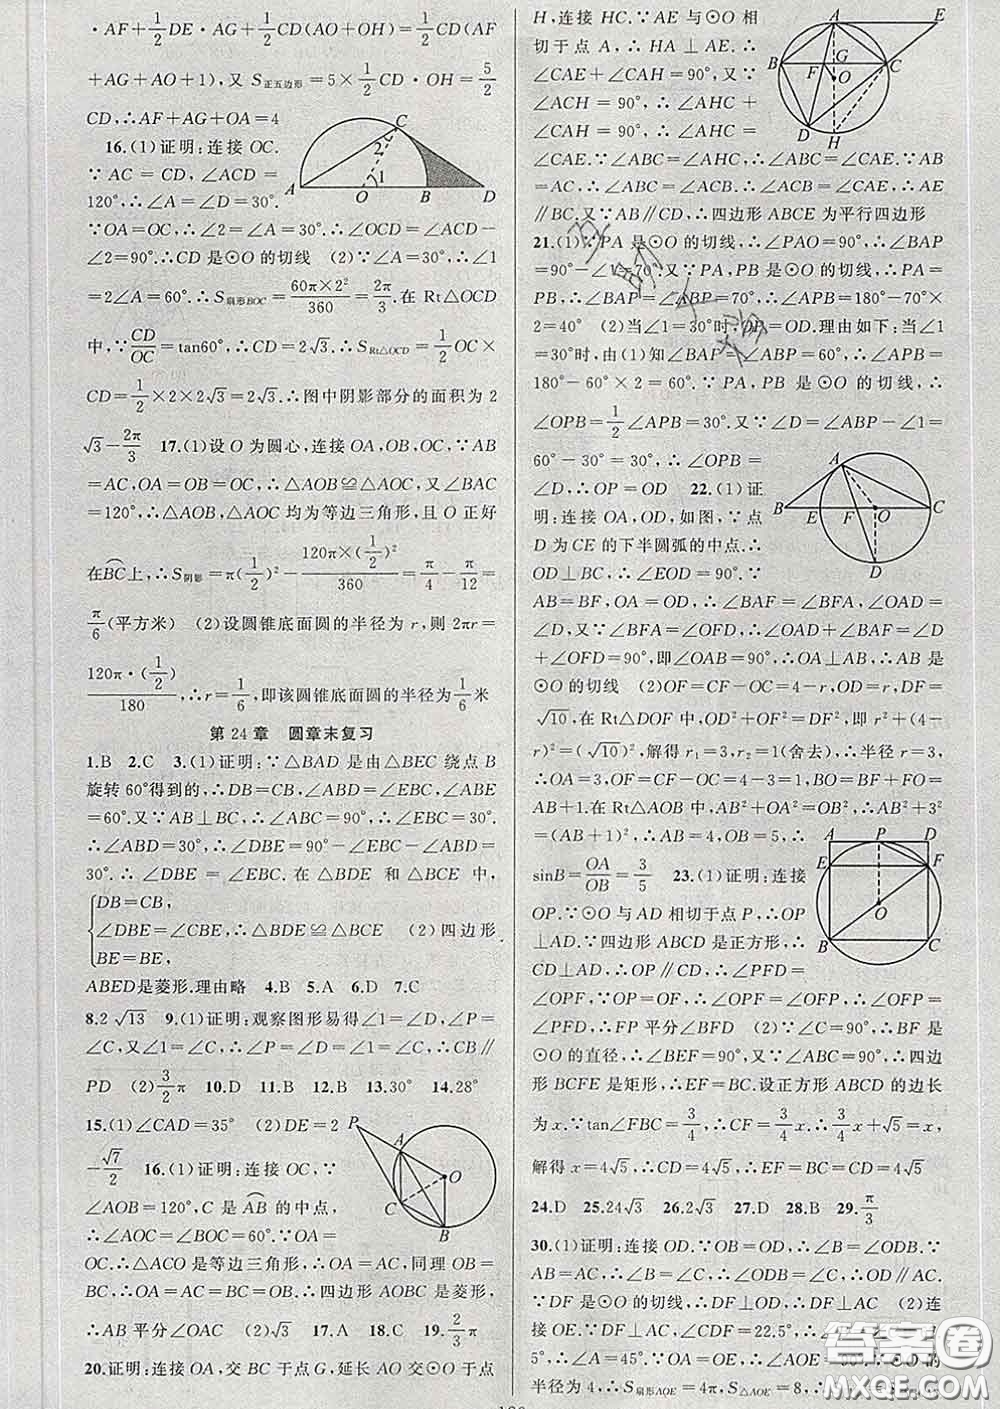 ·AF+1/2DE·AG+1/2CD(AO+OH)=1/2CD(AF
+AG+AO+1),又 S正五边形=5×1/2CD·OH=5/2
CD,∴AF+AG+OA=4
16.(1)证明:连接OC.
∵AC=CD,∠ACD=
120°,∴∠A=∠D=30°.
∵OA=OC,∴∠2=∠A=30°.∴∠OCD=∠ACD
-∠2=90°.∴CD是⊙O的切线 (2)∵∠A=30°,∴∠1
=2∠A=60°.∴S扇形BOC=60π×2²/360=2π/3.在Rt△OCD
中,∵CD/OC=tan60°,∴CD=2√3.∴S Rt△OCD=1/2OC×
CD=1/2×2×2√3=2√3.∴图中阴影部分的面积为2
√3-2π/3 17.(1)设O为圆心,连接OA,OB,OC,∵AB
=AC,OA=OB=OC,∴△AOB≌△AOC.又∠BAC
=120°,∴△AOB,△AOC均为等边三角形,且O正好
在BC上,∴S阴影=π(1/2)²-120π×(1/2)²/360=π/4-π/12=
π/6(平方米) (2)设圆锥底面圆的半径为r,则2πr=
120π·(1/2)/180,∴r=1/6,即该圆锥底面圆的半径为1/6米
第24章 圆章末复习
1.B 2.C 3.(1)证明:∵△BAD是由△BEC绕点B
旋转60°得到的,∴DB=CB,∠ABD=∠EBC,∠ABE
=60°.又∵AB⊥BC,∴∠ABC=90°.∴∠EBC=30°.
∴∠ABD=30°.∴∠DBE=90°-∠EBC-∠ABD=
30°.∴∠DBE=∠EBC.在△BDE和△BCE中,
DB=CB,
∠DBE=∠CBE,∴△BDE≌△BCE (2)四边形
BE=BE,
ABED是菱形.理由略 4.B 5.A 6.D 7.C
8.2√13 9.(1)证明:观察图形易得∠1=∠D,∠P=
∠C,又∠1=∠C,∴∠P=∠D,∴∠P=∠1,∴CB∥
PD (2)3/2π 10.D 11.B 12.B 13.30° 14.28°
15.(1)∠CAD=35° (2)DE=2
-√7/2 16.(1)证明:连接OC,∵
∠AOB=120°,C是AB的中点,
∴∠AOC=∠BOC=60°.∵OA=
OC.∴△ACO是等边三角形,∴OA=AC,同理OB=
BC,∴OA=AC=BC=OB.∴四边形AOBC是菱形,
∴AB平分∠OAC (2)√3 17.A 18.C 19.2/3π
20.证明:连接OA,交BC于点G,延长AO交⊙O于点
H,连接HC.∵AE与⊙O相
切于点A,∴HA⊥AE.∴
∠CAE+∠CAH=90°.又∵
∠ACH=90°,∴∠AHC+
∠CAH=90°,∴∠AHC=
∠CAE.∵∠ABC=∠AHC,∴∠ABC=∠CAE.∵AB
=AC,∴∠ABC=∠ACB.∴∠ACB=∠CAE,∴AE
∥BC.又∵AB∥CD,∴四边形ABCE为平行四边形
21.(1)∵PA是⊙O的切线,∴∠PAO=90°,∴∠BAP
=90°-∠1=70°.又∵PA,PB是⊙O的切线,∴PA=
PB,∴∠BAP=∠ABP=70°,∴∠APB=180°-70°×
2=40° (2)当∠1=30°时,OP=OD.理由如下:当∠1
=30°时,由(1)知∠BAP=∠ABP=60°,∴∠APB=
180°-60°×2=60°.∵PA,PB是⊙O的切线,∴
∠OPB=1/2∠APB=30°.又∵∠D=∠ABP-∠1=
60°-30°=30°,∴∠OPB=
∠D.∴OP=OD 22.(1)证
明:连接OA,OD,如图,∵点
D为CE的下半圆弧的中点.∴
OD⊥BC,∴∠EOD=90°.∵
AB=BF,OA=OD,∴∠BAF=∠BFA,∠OAD=
∠D,又∵∠BFA=∠OFD,∴∠OAD+∠BAF=∠D
+∠OFD=90°,即∠OAB=90°,∴OA⊥AB,∴AB是
⊙O的切线 (2)OF=CF-OC=4-r,OD=r,DF=
√10,在Rt△DOF中,OD²+OF²=DF²,即r²+(4-
r)²=(√10)²,解得r1=3,r2=1(舍去),∴半径r=3,
∴OA=3,OF=CF-OC=4-3=1,BO=BF+FO=
AB+1.在Rt△AOB中,AB²+OA²=OB²,∴AB²+3²
=(AB+1)²,∴AB=4,OB=5,∴
sinB=OA/OB=3/5 23.(1)证明:连接
OP.∵⊙O与AD相切于点P,∴OP
⊥AD.∵四边形ABCD是正方形,∴
CD⊥AD,∴OP∥CD,∴∠PFD=
∠OPF,∵OP=OF,∴∠OPF=∠OFP,∴∠OFP=
∠PFD,∴FP平分∠BFD (2)∵∠C=90°,∴BF是
⊙O的直径,∴∠BEF=90°,又∵∠C=90°,∴四边
形BCFE是矩形,∴EF=BC.设正方形ABCD的边长
为x.∵tan∠FBC=3/4,∴CF=3/4x,∴3/4x+√5=x,
解得x=4√5,∴CD=4√5,∴EF=BC=CD=4√5
24.D 25.24√3 26.2√3 27.D 28.B 29.π/3
30.(1)证明:连接OD.∵OB=OD,∴∠B=∠ODB.∵
AB=AC,∴∠B=∠C,∴∠ODB=∠C,∴OD∥AC.
∵DF是⊙O的切线,∴DF⊥OD,∴DF⊥AC (2)连
接OE.∵DF⊥AC,∠CDF=22.5°,∴∠
5°,∴∠A=45°.∵OA=OE,∴∠AOE=90°,∴⊙O的
半径为4,∴S扇形AOE=4π,S△AOE=8,∴
A
O
B
D
C
2
1
P
A
O
C
B
A
E
B
F
G
C
O
D
H
A
B
E
F
O
C
D
A
P
D
E
F
O
B
C
答案圈
MXQE.COM